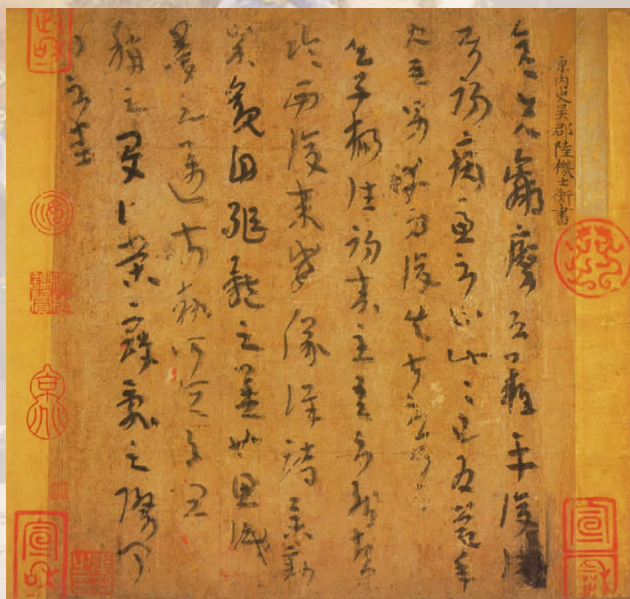 晉內史吳郡陸機士衡書
彦先羸瘵恐難平復往屬
初病慮不止此此已為慶承
使唯男幸為復失前憂耳
吳子楊往初來主吾不能盡
臨西復來威儀詳跱舉動
成觀自軀體之美也思識
量之邁前執所恒有宜
稱之夏伯榮寇亂之際聞
問不悉
宣龢